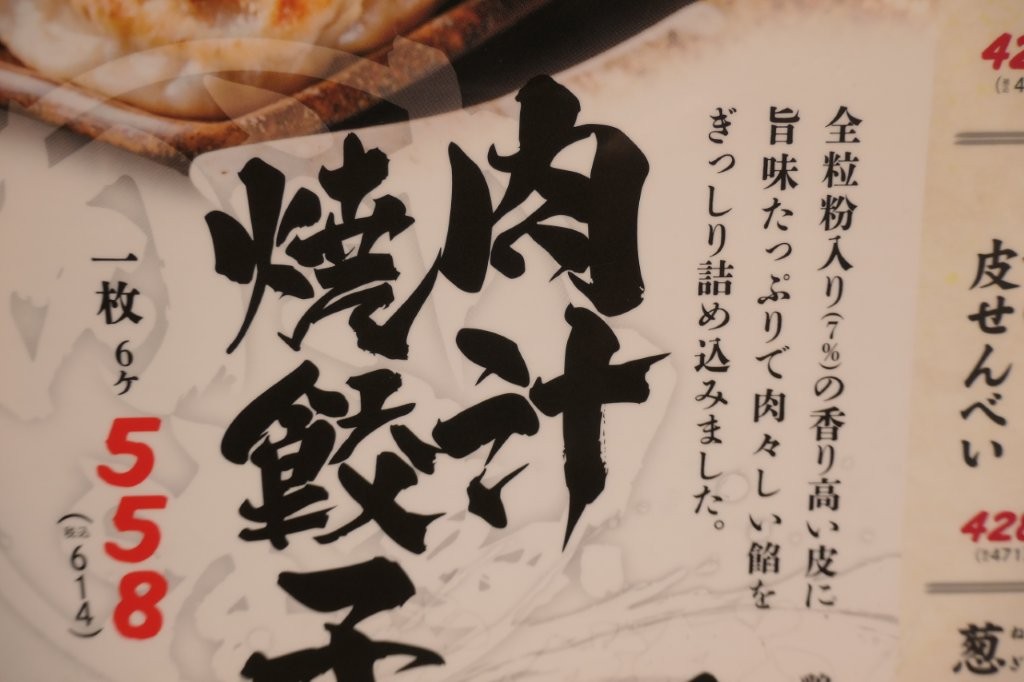 全粒粉入り(7%)の香り高い皮に
旨味たっぷりで肉々しい餡を
ぎっしり詰め込みました。
肉汁
焼餃子
一枚 6ヶ
558
(税込614)
皮せんべい
葱
ねぎ